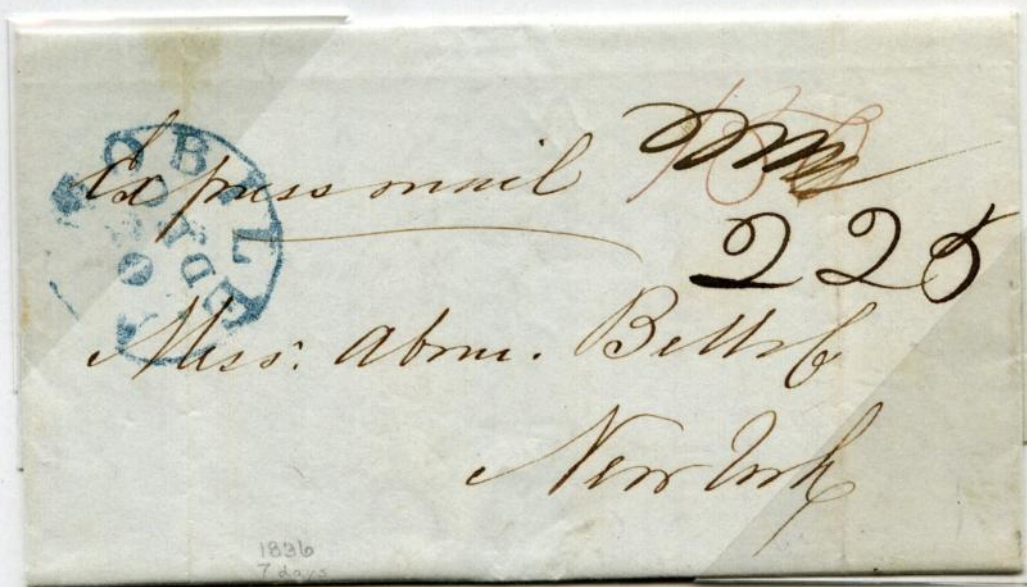 OBILE
Express mail
225
Mess: Abm. Betts &
New York
1836
7 days